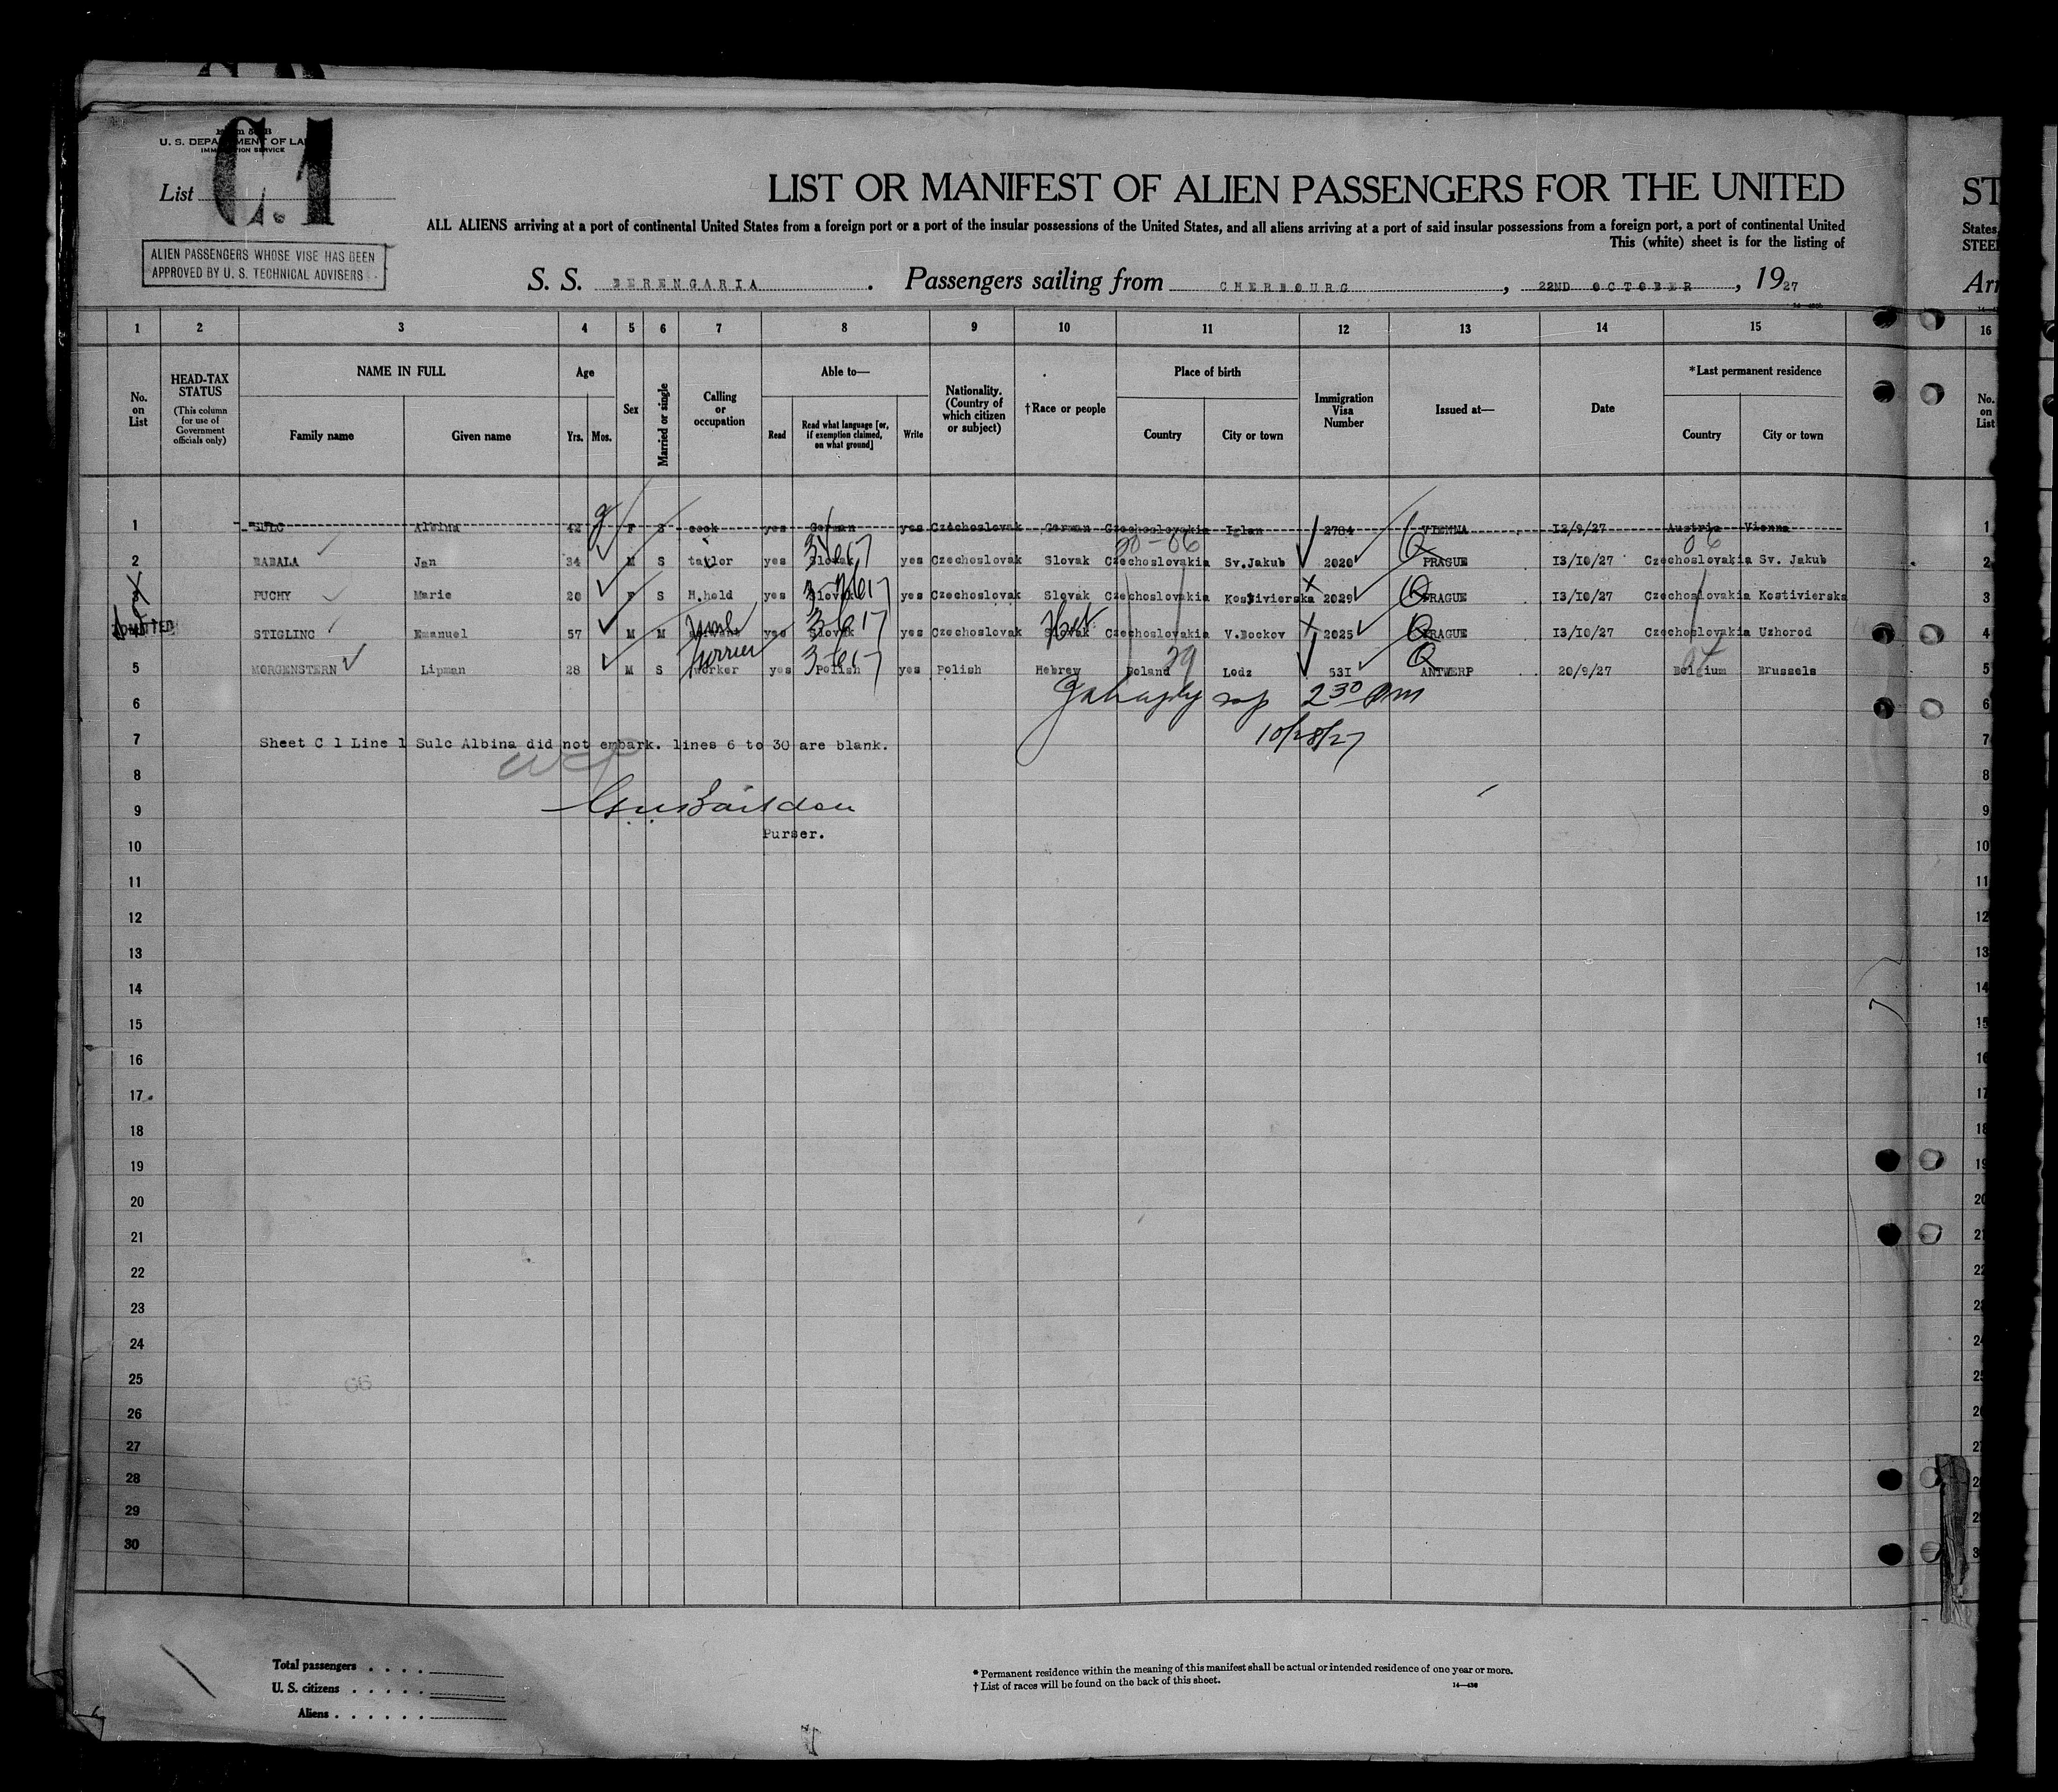 C.1
U. S. DEPARTMENT OF LA
IMMIGRATION SERVICE
List
LIST OR MANIFEST OF ALIEN PASSENGERS FOR THE UNITED
ST
ALL ALIENS arriving at a port of continental United States from a foreign port or a port of the insular possessions of the United States, and all aliens arriving at a port of said insular possessions from a foreign port, a port of continental United
States,
This (white) sheet is for the listing of
STEE
ALIEN PASSENGERS WHOSE VISE HAS BEEN
APPROVED BY U. S. TECHNICAL ADVISERS
S. S. BERENGARIA. Passengers sailing from CHERBOURG, 22ND OCTOBER, 1927
Arr
1 2 3 4 5 6 7 8 9 10 11 12 13 14 15 16
No. on List
HEAD-TAX STATUS (This column for use of Government officials only)
NAME IN FULL
Family name Given name
Age
Yrs. Mos.
Sex
Married or single
Calling or occupation
Able to—
Read Read what language [or, if exemption claimed, on what ground] Write
Nationality. (Country of which citizen or subject)
†Race or people
Place of birth
Country City or town
Immigration Visa Number
Issued at—
Date
*Last permanent residence
Country City or town
No. on List
1 SULC Albina 42 F S cook yes German yes Czechoslovak German Czechoslovakia Iglan 2784 VIENNA 12/9/27 Austria Vienna 1
2 BABALA Jan 34 M S taylor yes Slovak yes Czechoslovak Slovak Czechoslovakia Sv.Jakub 2020 PRAGUE 13/10/27 Czechoslovakia Sv. Jakub 2
3 PUCHY Marie 20 F S H.hold yes Slovak yes Czechoslovak Slovak Czechoslovakia Kostivierska 2029 PRAGUE 13/10/27 Czechoslovakia Kostivierska 3
ADMITTED STIGLINC Emanuel 57 M M yes Slovak yes Czechoslovak Slovak Heb Czechoslovakia V.Bockov 2025 PRAGUE 13/10/27 Czechoslovakia Uzhorod 4
5 MORGENSTERN Lipman 28 M S furrier worker yes Polish yes Polish Hebrew Poland Lodz 531 ANTWERP 20/9/27 Belgium Brussels 5
6 2 30 PM 6
10/28/27
7 Sheet C 1 Line 1 Sulc Albina did not embark. lines 6 to 30 are blank. 7
8 8
9 9
Purser.
10 10
11 11
12 12
13 13
14 14
15 15
16 16
17 17
18 18
19 19
20 20
21 21
22 22
23 23
24 24
25 25
26 26
27 27
28 28
29 29
30 30
Total passengers
U. S. citizens
Aliens
* Permanent residence within the meaning of this manifest shall be actual or intended residence of one year or more.
† List of races will be found on the back of this sheet.
14—430